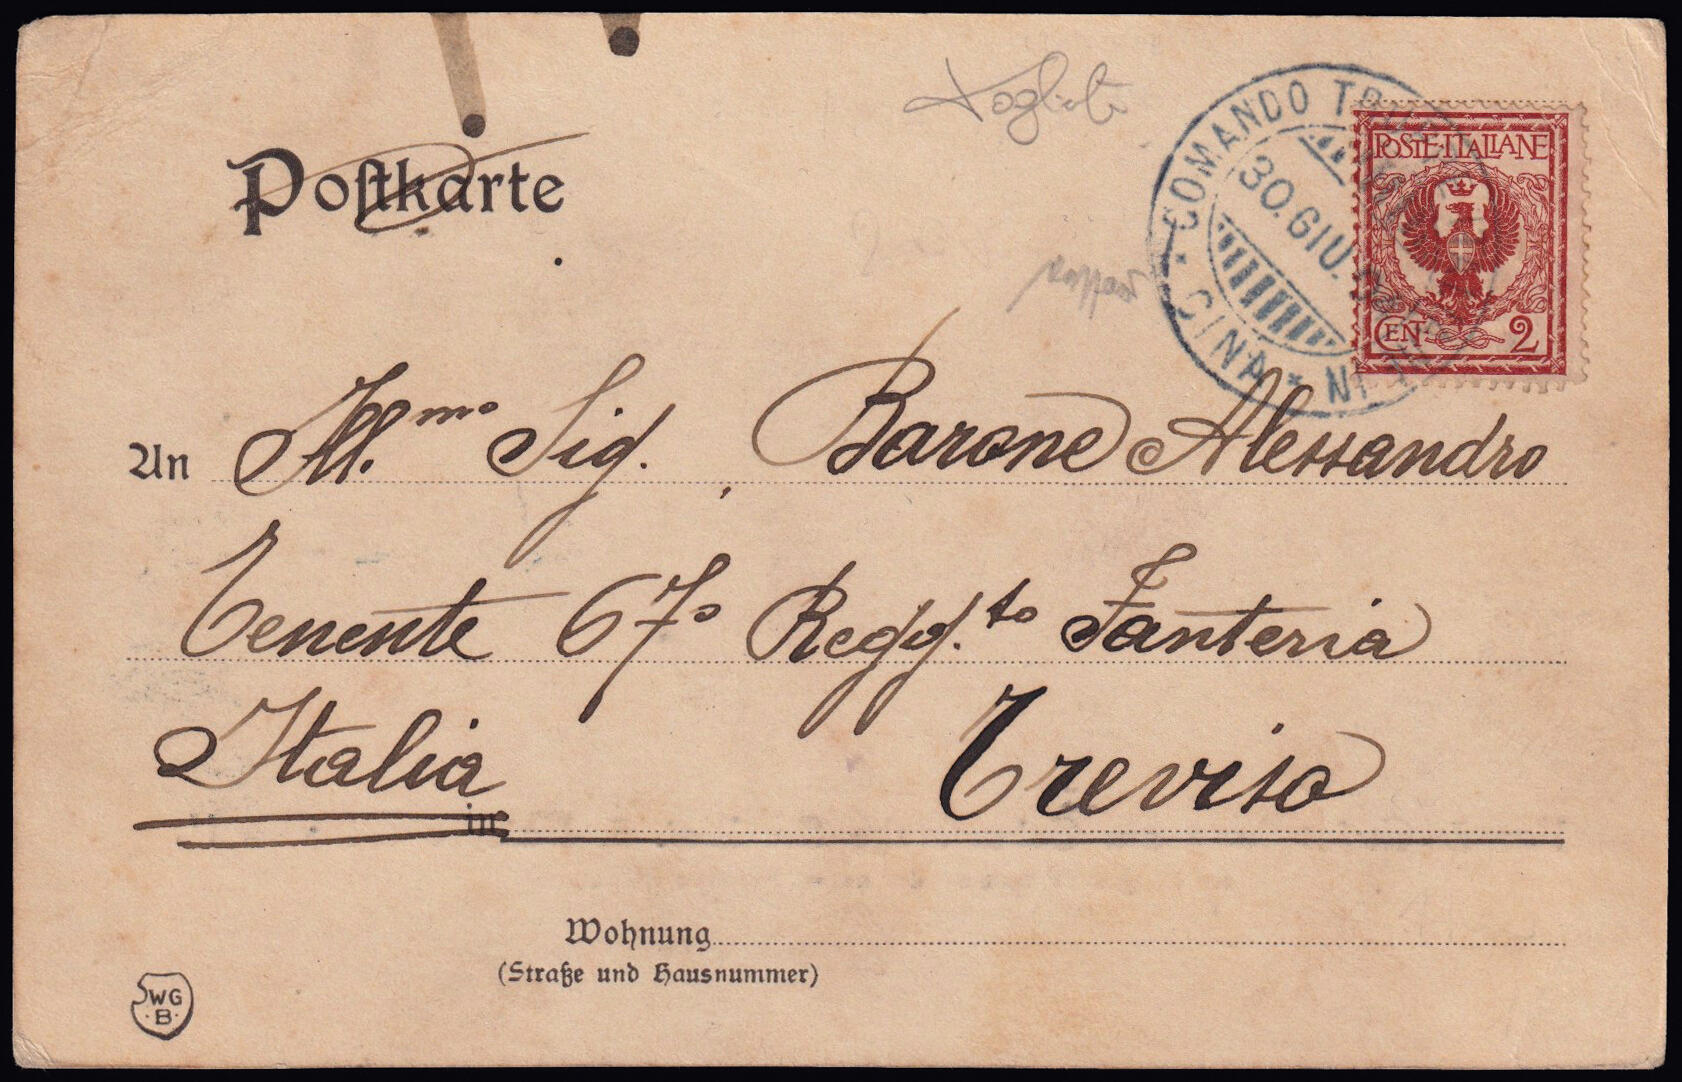 Postkarte
COMANDO
30. GIU.
CINA
POSTE·ITALIANE
CEN· 2
An Ill.mo Sig. Barone Alessandro
Tenente 67º Regg.to Fanteria
Italia Treviso
in
Wohnung
(Straße und Hausnummer)
WG
·B·